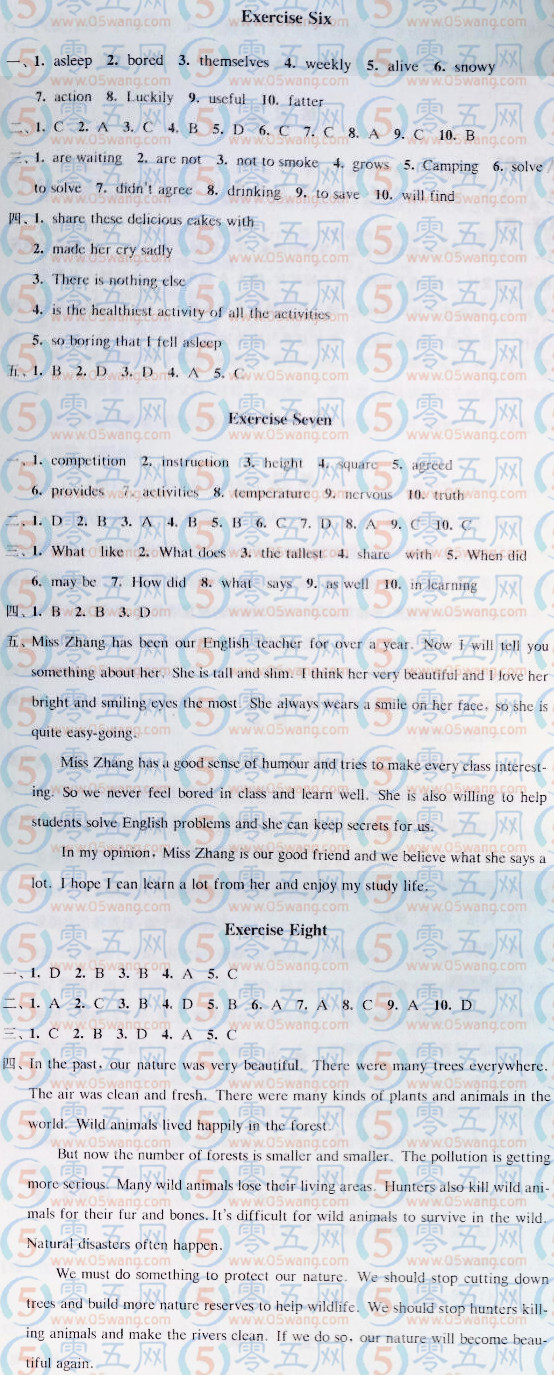 Exercise Six
一、1. asleep 2. bored 3. themselves 4. weekly 5. alive 6. snowy
7. action 8. Luckily 9. useful 10. fatter
二、1. C 2. A 3. C 4. B 5. D 6. C 7. C 8. A 9. C 10. B
三、1. are waiting 2. are not 3. not to smoke 4. grows 5. Camping 6. solve
to solve 7. didn't agree 8. drinking 9. to save 10. will find
四、1. share these delicious cakes with
2. made her cry sadly
3. There is nothing else
4. is the healthiest activity of all the activities
5. so boring that I fell asleep
五、1. B 2. D 3. D 4. A 5. C
Exercise Seven
一、1. competition 2. instruction 3. height 4. square 5. agreed
6. provides 7. activities 8. temperature 9. nervous 10. truth
二、1. D 2. B 3. A 4. B 5. B 6. C 7. D 8. A 9. C 10. C
三、1. What like 2. What does 3. the tallest 4. share with 5. When did
6. may be 7. How did 8. what says 9. as well 10. in learning
四、1. B 2. B 3. D
五、Miss Zhang has been our English teacher for over a year. Now I will tell you
something about her. She is tall and slim. I think her very beautiful and I love her
bright and smiling eyes the most. She always wears a smile on her face, so she is
quite easy-going.
Miss Zhang has a good sense of humour and tries to make every class interest-
ing. So we never feel bored in class and learn well. She is also willing to help
students solve English problems and she can keep secrets for us.
In my opinion, Miss Zhang is our good friend and we believe what she says a
lot. I hope I can learn a lot from her and enjoy my study life.
Exercise Eight
一、1. D 2. B 3. B 4. A 5. C
二、1. A 2. C 3. B 4. D 5. B 6. A 7. A 8. C 9. A 10. D
三、1. C 2. B 3. D 4. A 5. C
四、In the past, our nature was very beautiful. There were many trees everywhere.
The air was clean and fresh. There were many kinds of plants and animals in the
world. Wild animals lived happily in the forest.
But now the number of forests is smaller and smaller. The pollution is getting
more serious. Many wild animals lose their living areas. Hunters also kill wild ani-
mals for their fur and bones. It's difficult for wild animals to survive in the wild.
Natural disasters often happen.
We must do something to protect our nature. We should stop cutting down
trees and build more nature reserves to help wildlife. We should stop hunters kill-
ing animals and make the rivers clean. If we do so, our nature will become beau-
tiful again.
零五网
www.05wang.com